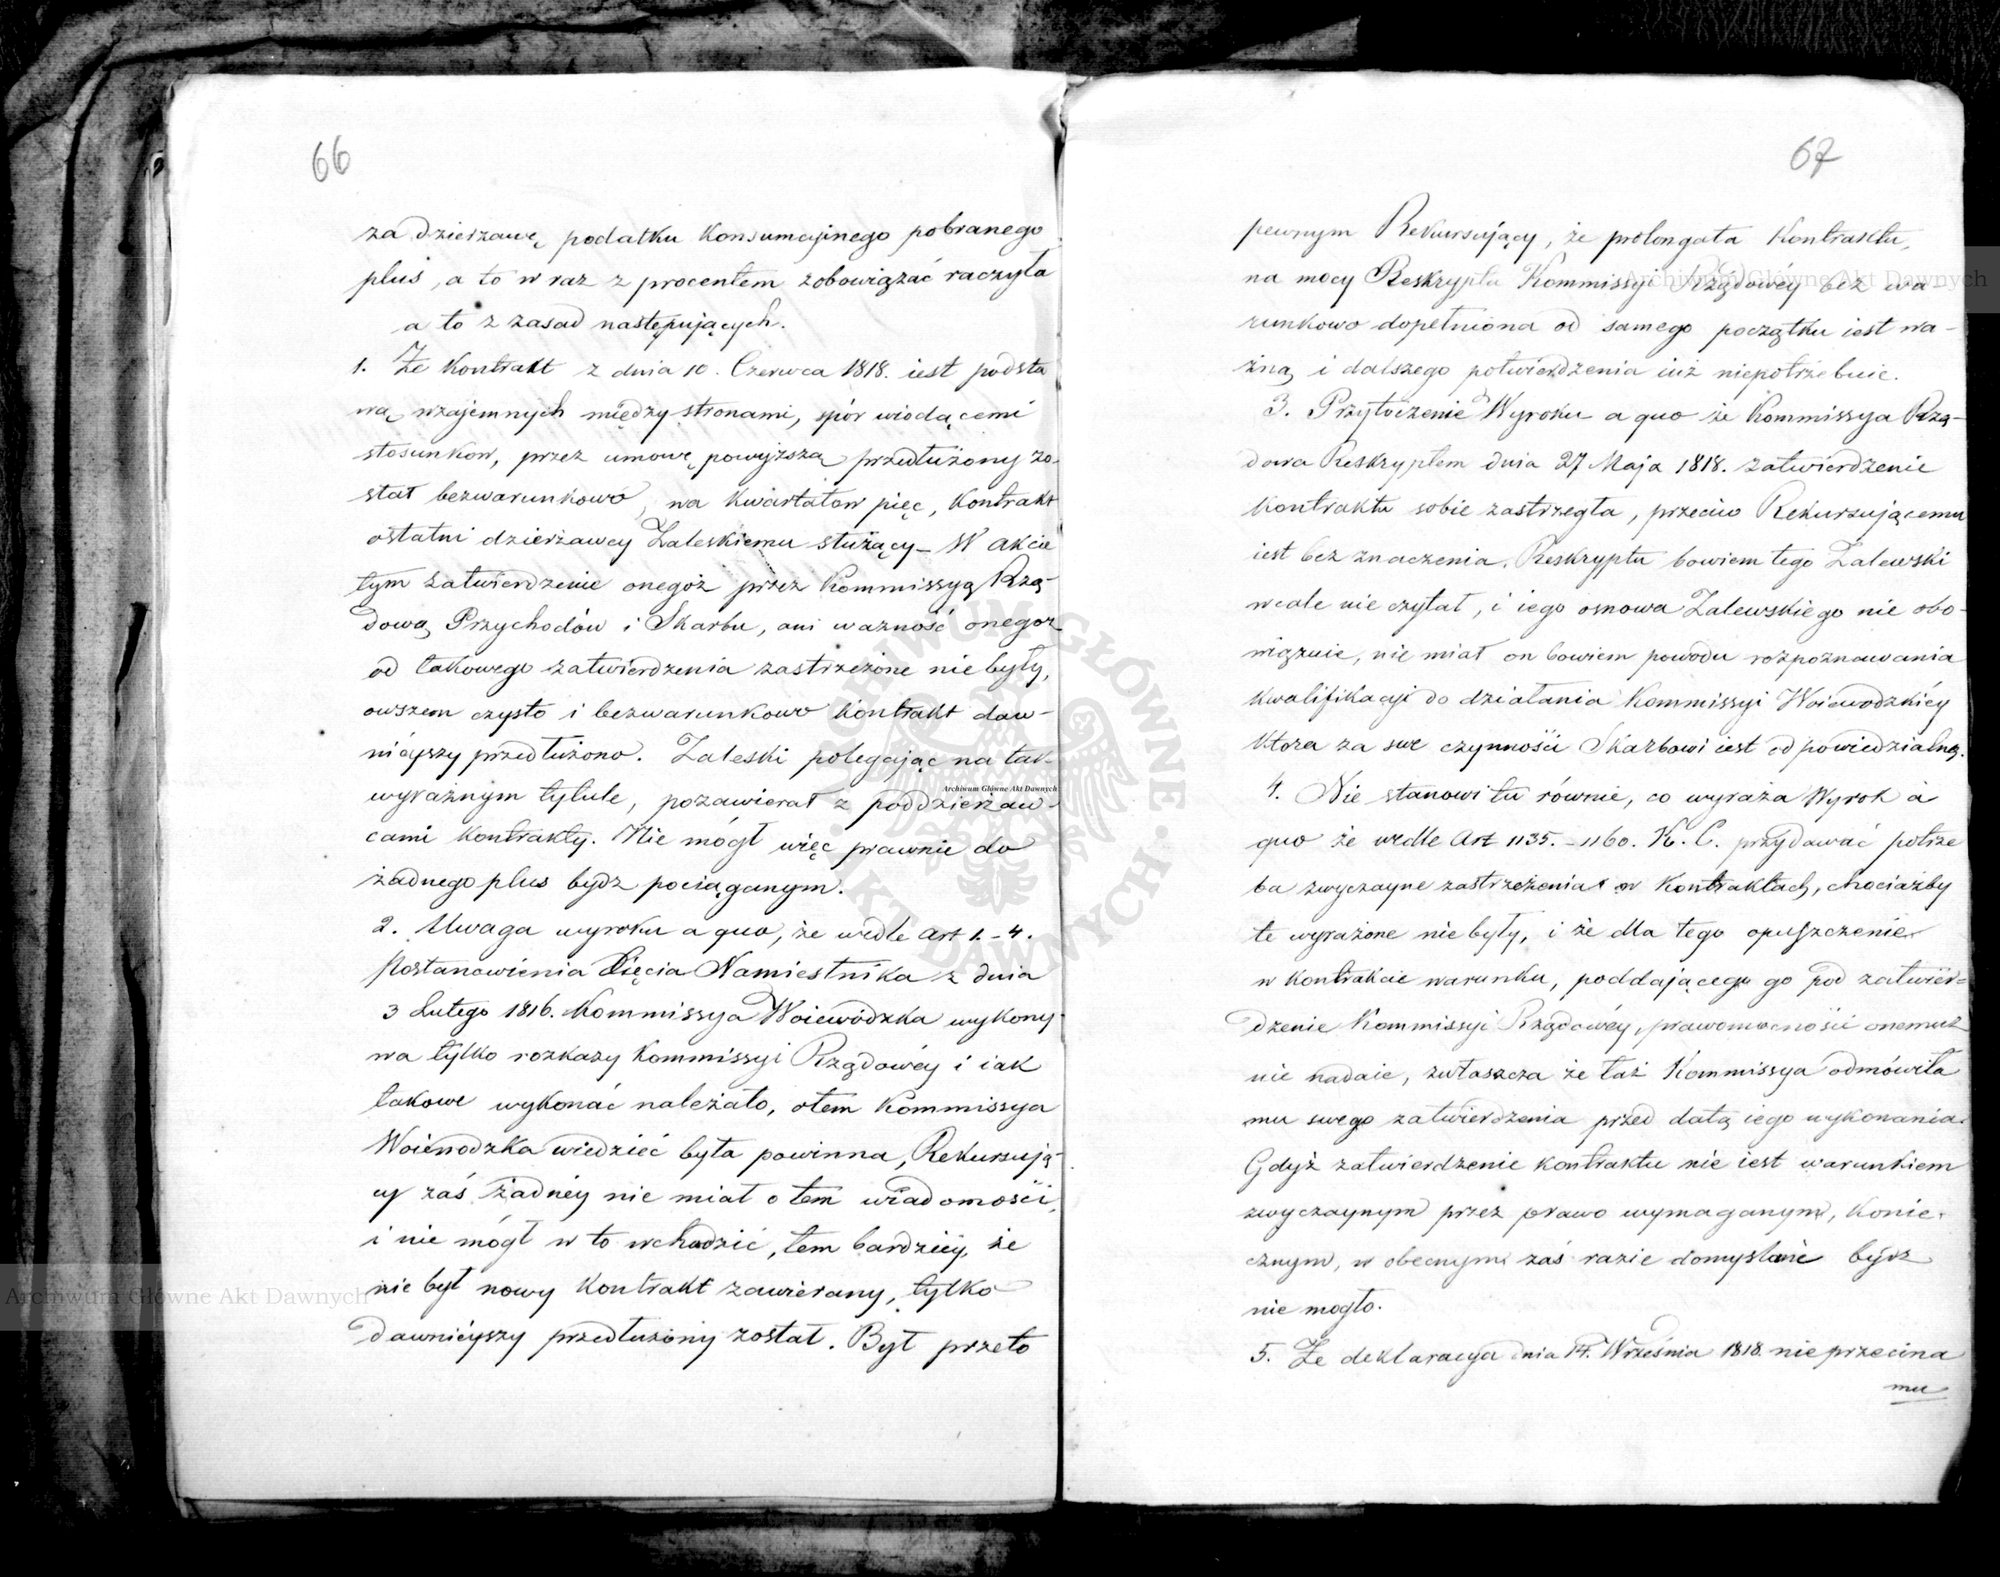 66
za dzierzawę podatku konsumcyjnego pobranego
plus, a to w raz z procentem zobowiązać raczyła
a to z zasad następujących.
1. Że kontrakt z dnia 10. Czerwca 1818. iest podsta
wą wzajemnych między stronami, spór wiodącemi
stosunkow, przez umowę powyższą przedłużony zo-
stał bezwarunkowo, na kwartałow pięc, kontrakt
ostatni dzierżawcy Zaleskiemu służący – W akcie
tym zatwierdzenie onegoż przez Kommissyą Rzą-
dową Przychodów i Skarbu, ani ważność onegoż
od takowego zatwierdzenia zastrzeżone nie były,
owszem czysto i bezwarunkowo kontrakt daw-
nieyszy przedłużono. Zaleski polegając na tak
wyraźnym tytule, pozawierał z poddzierżaw-
cami kontrakty. Nie mógł więc prawnie do
żadnego plus bydz pociąganym.
2. Uwaga wyroku a quo, że wedle Art 1.–4.
Postanowienia Xięcia Namiestnika z dnia
3 Lutego 1816. Kommissya Woiewódzka wykony-
wa tylko rozkazy Kommissyi Rządowéy i iak
takowe wykonać należało, otem Kommissya
Woiewodzka wiedzieć była powinna, Rekursują-
cy zaś żadnéy nie miał o tem wiadomości,
i nie mógł w to wchodzić, tem bardziéy, że
nie był nowy kontrakt zawierany, tylko
dawnieyszy przedłużony został. Był przeto
67
pewnym Rekursujący, że prolongata kontraktu,
na mocy Reskryptu Kommissyi Rządowéy bez wa-
runkowo dopełniona od samego początku iest wa-
żną i dalszego potwierdzenia iuż niepotrzebuie.
3. Przytoczenie Wyroku a quo że Kommissya Rzą-
dowa Reskryptem dnia 27 Maja 1818. zatwierdzenie
kontraktu sobie zastrzegła, przeciw Rekursującemu
iest bez znaczenia. Reskryptu bowiem tego Zalewski
wcale nie czytał, i iego osnowa Zalewskiego nie obo-
wiązuie, nie miał on bowiem powodu rozpoznawania
kwalifikacyi do działania Kommissyi Woiewodzkiéy
ktora za swe czynności Skarbowi iest odpowiedzialną.
4. Nie stanowi tu równie, co wyraża Wyrok a
quo że wedle Art 1135.–1160. K. C. przydawać potrze
ba zwyczayne zastrzeżenia w kontraktach, chociażby
te wyrażone nie były, i że dla tego opuszczenie
w kontrakcie warunku, poddającego go pod zatwier-
dzenie Kommissyi Rządowéy, prawomocności onemuż
nie nadaie, zwłaszcza że taż Kommissya odmówiła
mu swego zatwierdzenia przed datą iego wykonania.
Gdyż zatwierdzenie kontraktu nie iest warunkiem
zwyczaynym przez prawo wymaganym, konie-
cznym, w obecnym zaś razie domyslnie bydz
nie mogło.
5. Że deklaracya dnia 14. Września 1818 nie przecina
mu
Archiwum Główne Akt Dawnych
Archiwum Główne Akt Dawnych
Archiwum Główne Akt Dawnych
ARCHIWUM GŁÓWNE · AKT DAWNYCH ·